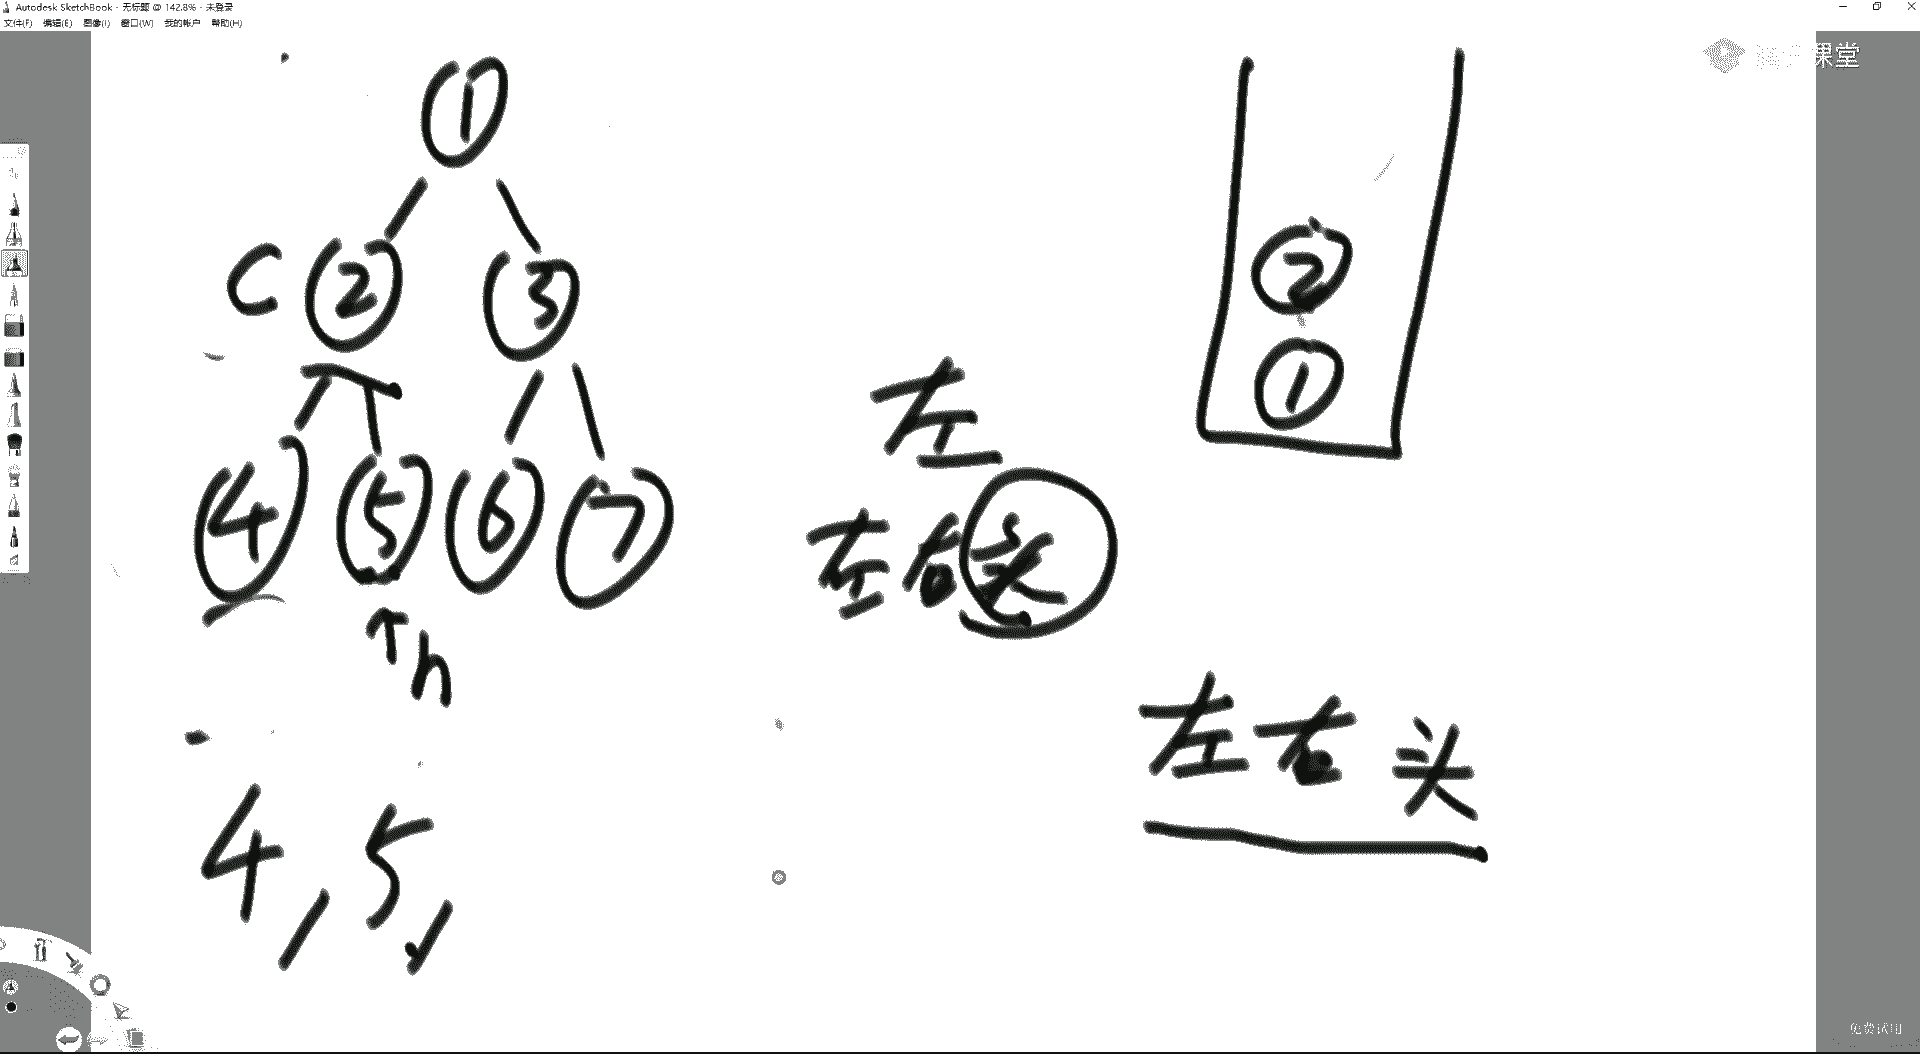 Autodesk SketchBook - 无标题 @ 142.8% - 未登录
文件(F) 编辑(E) 图像(I) 窗口(W) 我的帐户 帮助(H)
课堂
1
C 2 3
4 5 6 7
h
2
1
左
左右头
左右头
4, 5,
免费试用